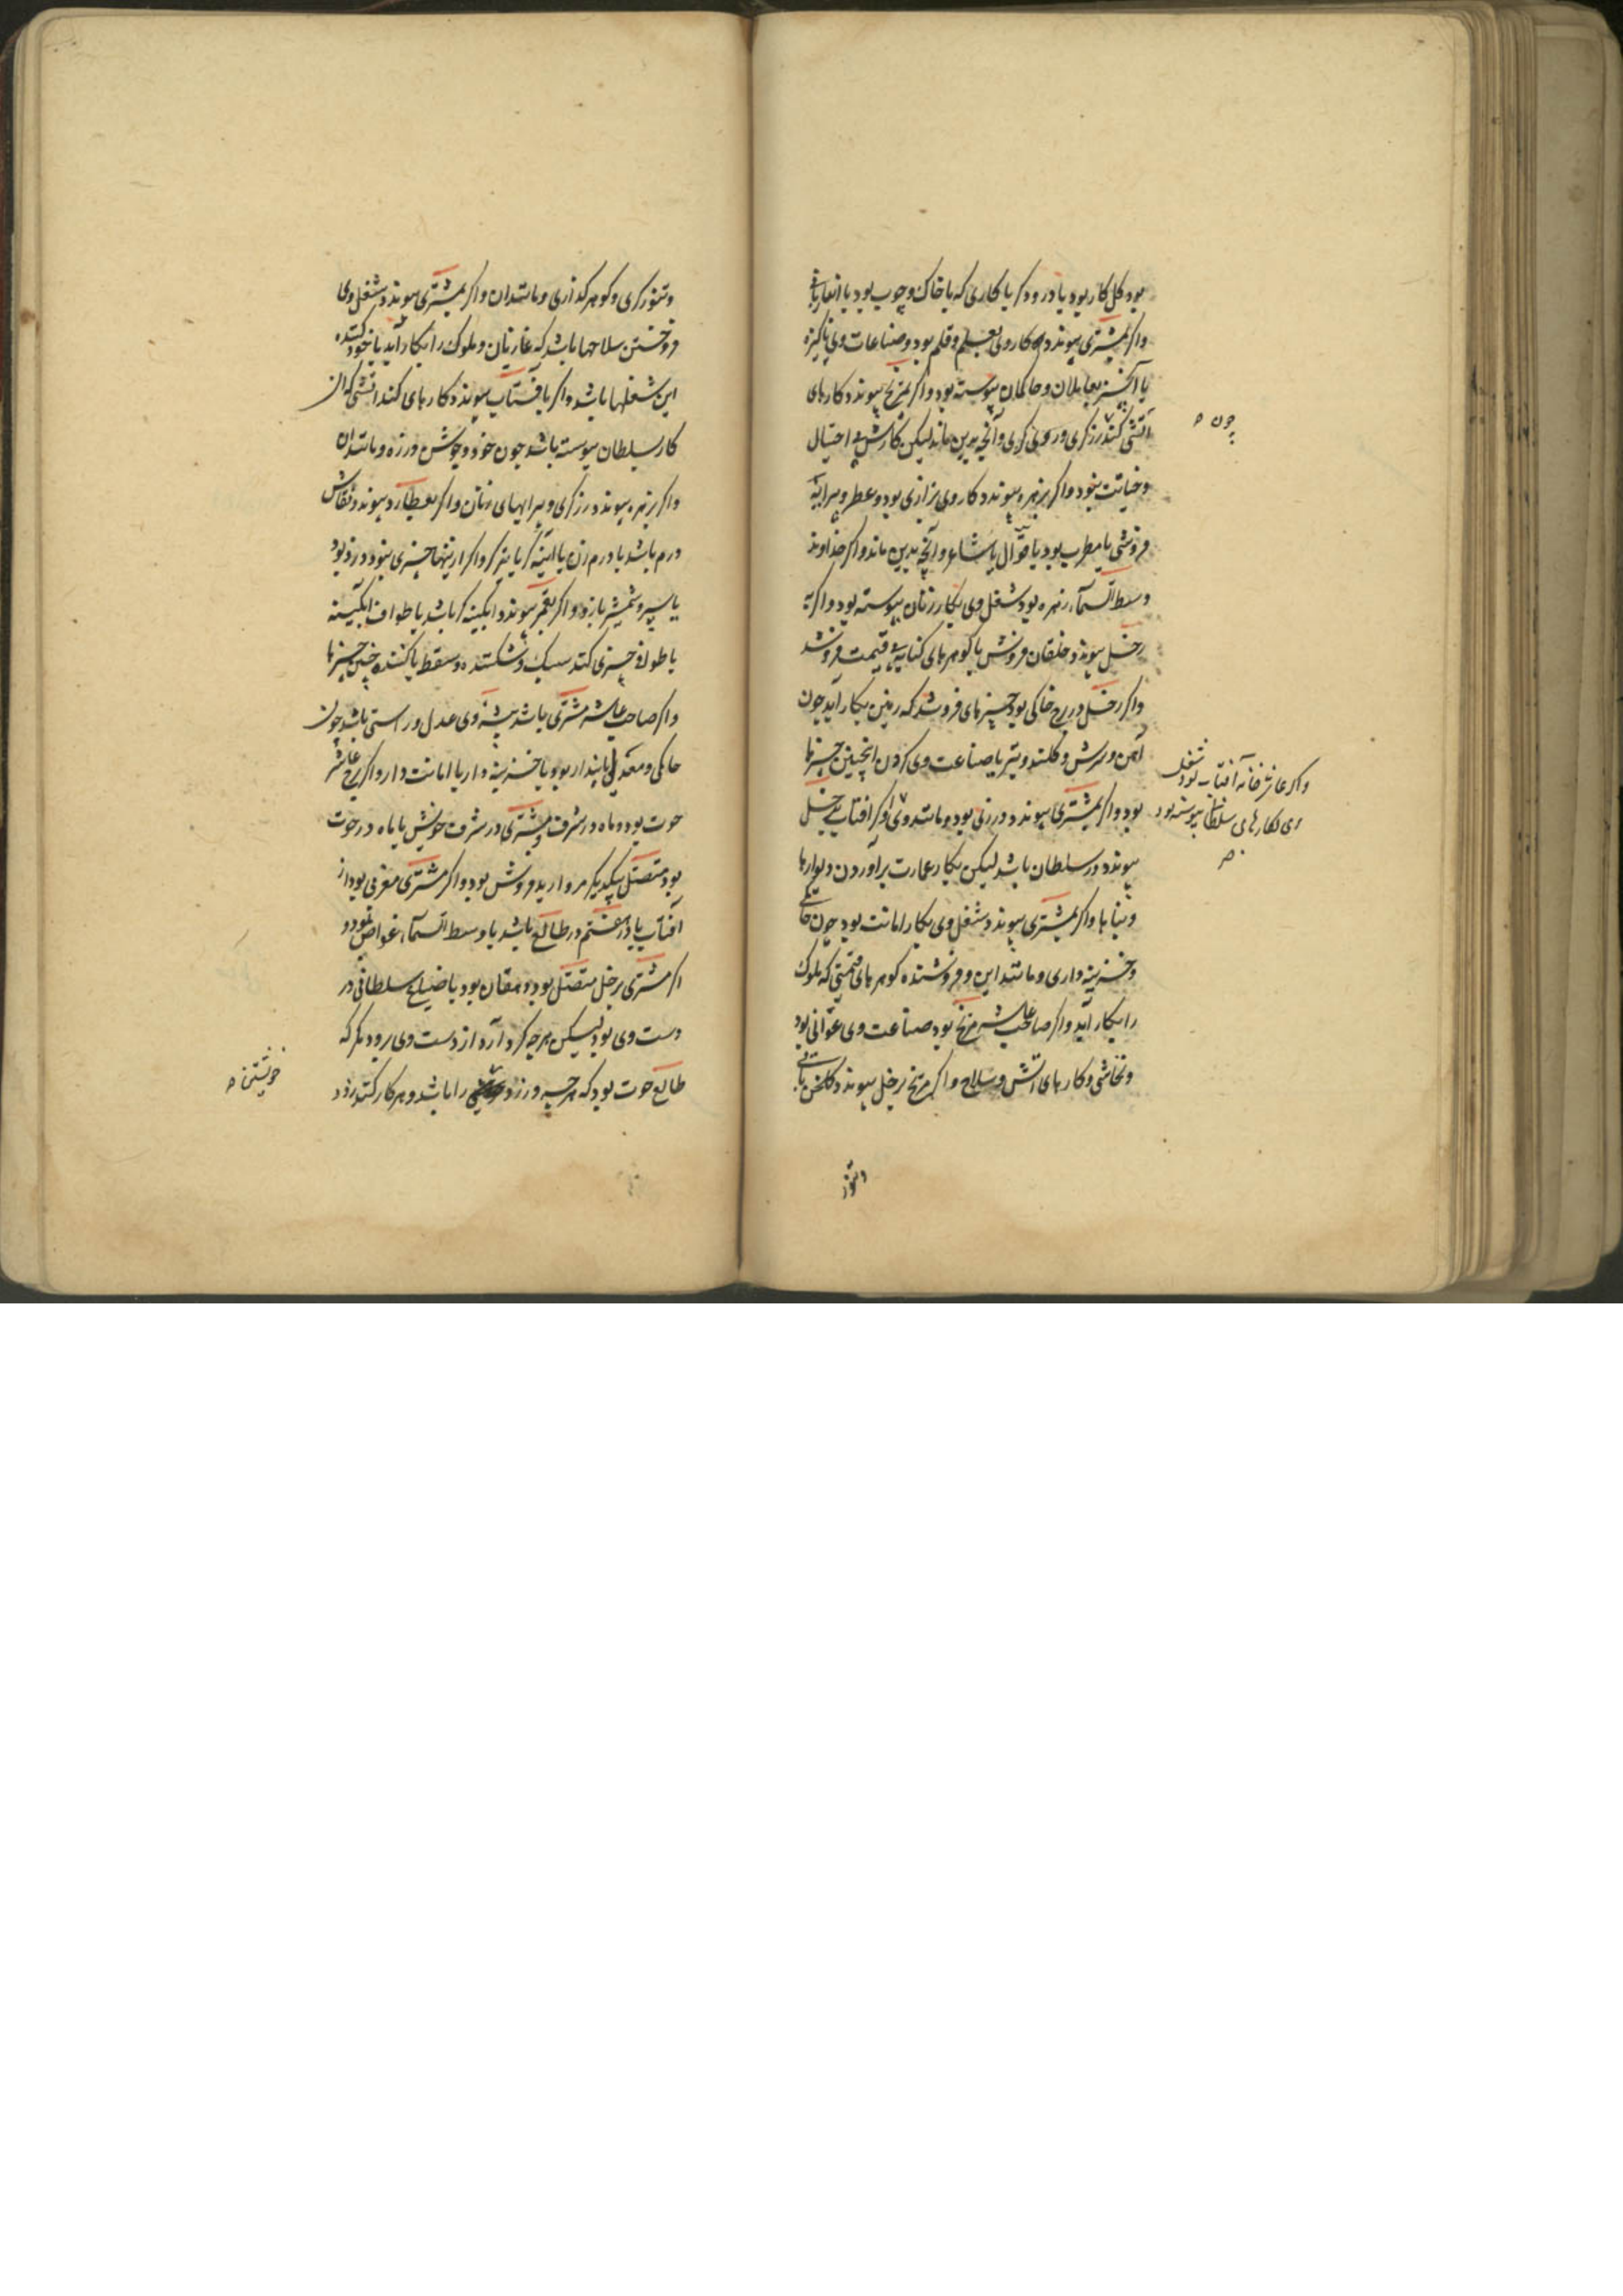 بود کل کار بود یا درودگر یا کاری که با خاک و چوب بود یا
واکر بمشتری پیوندد کار وی بعلم و قلم بود و صناعات وی پاکیزه
یا بعاملان و حاکمان پیوسته بود واکر بمریخ پیوندد کارهای
چون
آتشی کند زرکری و وآنچه بدین ماند لیکن کارش احتیال
و خیانت بنود واکر بزهره پیوندد کار وی بزازی بود و عطر و پیرایه
فروشی یا مطرب بود یا قوّال یا شاعر وآنچه بدین ماند واکر خداوند
وسط السمآء زهره بود شغل وی بکار زنان پیوسته بود واکر به
زحل پیوندد خلقان فروش یا کوهرهای قیمت فروشد
واکر زحل در برج خاکی بود چیزهای فروشد که زمین بکار آید چون
آهن و و کلند و تبر یا صناعت وی کردن اینچنین چیزها
واکر عاشر خانه آفتاب بود شغل
وی بکارهای سلطان پیوسته بود
بود واکر بمشتری پیوندد درزی بود و مانند وی واکر افتاب بزحل
پیوندد در سلطان باشد لیکن بکار عمارت برآوردن دیوارها
و بناها واکر بمشتری پیوندد شغل وی بکار امانت بود چون
و خزینه داری و مانند این و فروشنده کوهرهای قیمتی که ملوک
را بکار آید واکر صاحب عاشر مریخ بود صناعت وی عوانی بود
و نخاشی و کارهای آتش و سلاح واکر مریخ بزحل پیوندد کلخن
و تنورکری و کوهرکدازی و مانندان واکر بمشتری پیوندد شغل وی
فروختن سلاحها باشد که غازیان و ملوک را بکار آید یا خود کننده
این شغلها باشد واکر بافتاب پیوندد کارهای کند اتشی که از
کار سلطان پیوسته باشد چون خود و جوشن و زره و مانندان
واکر بزهره پیوندد زرکری و پیرایهای زنان واکر بعطارد پیوندد نقاش
درم باشد یا درم زن یا آینه کر یا تیرکر واکر ازینها چیزی بنود دزد بود
یا سپر و شمشیر باز و واکر بقمر پیوندد آبکینه کر باشد یا طواف آبکینه
یا چیزی کند سبک و شکننده و سقط یا کننده چنین چیزها
واکر صاحب عاشر مشتری باشد پیشه وی عدل و راستی باشد چون
حاکمی و معدلی یا بندار بود یا خزینه دار یا امانت دار واکر برج عاشر
حوت بود و ماه در شرف و مشتری در شرف خویش یا ماه در حوت
بود متصل بیکدیکر مروارید فروش بود واکر مشتری مغربی بود از
آفتاب یا در هفتم و در طالع باشد یا وسط السمآء غواص بود و
اکر مشتری بزحل متصل بود دهقان بود یا ضیاع سلطانی در
دست وی بود لیکن هرچه کرد آرد از دست وی برود مکر که
طالع حوت بود که هرچه ورزد را باشد و هر کار کند زود
خویشتن